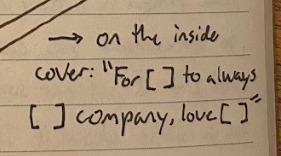 → on the inside
cover: "For [ ] to always
[ ] company, love [ ]"